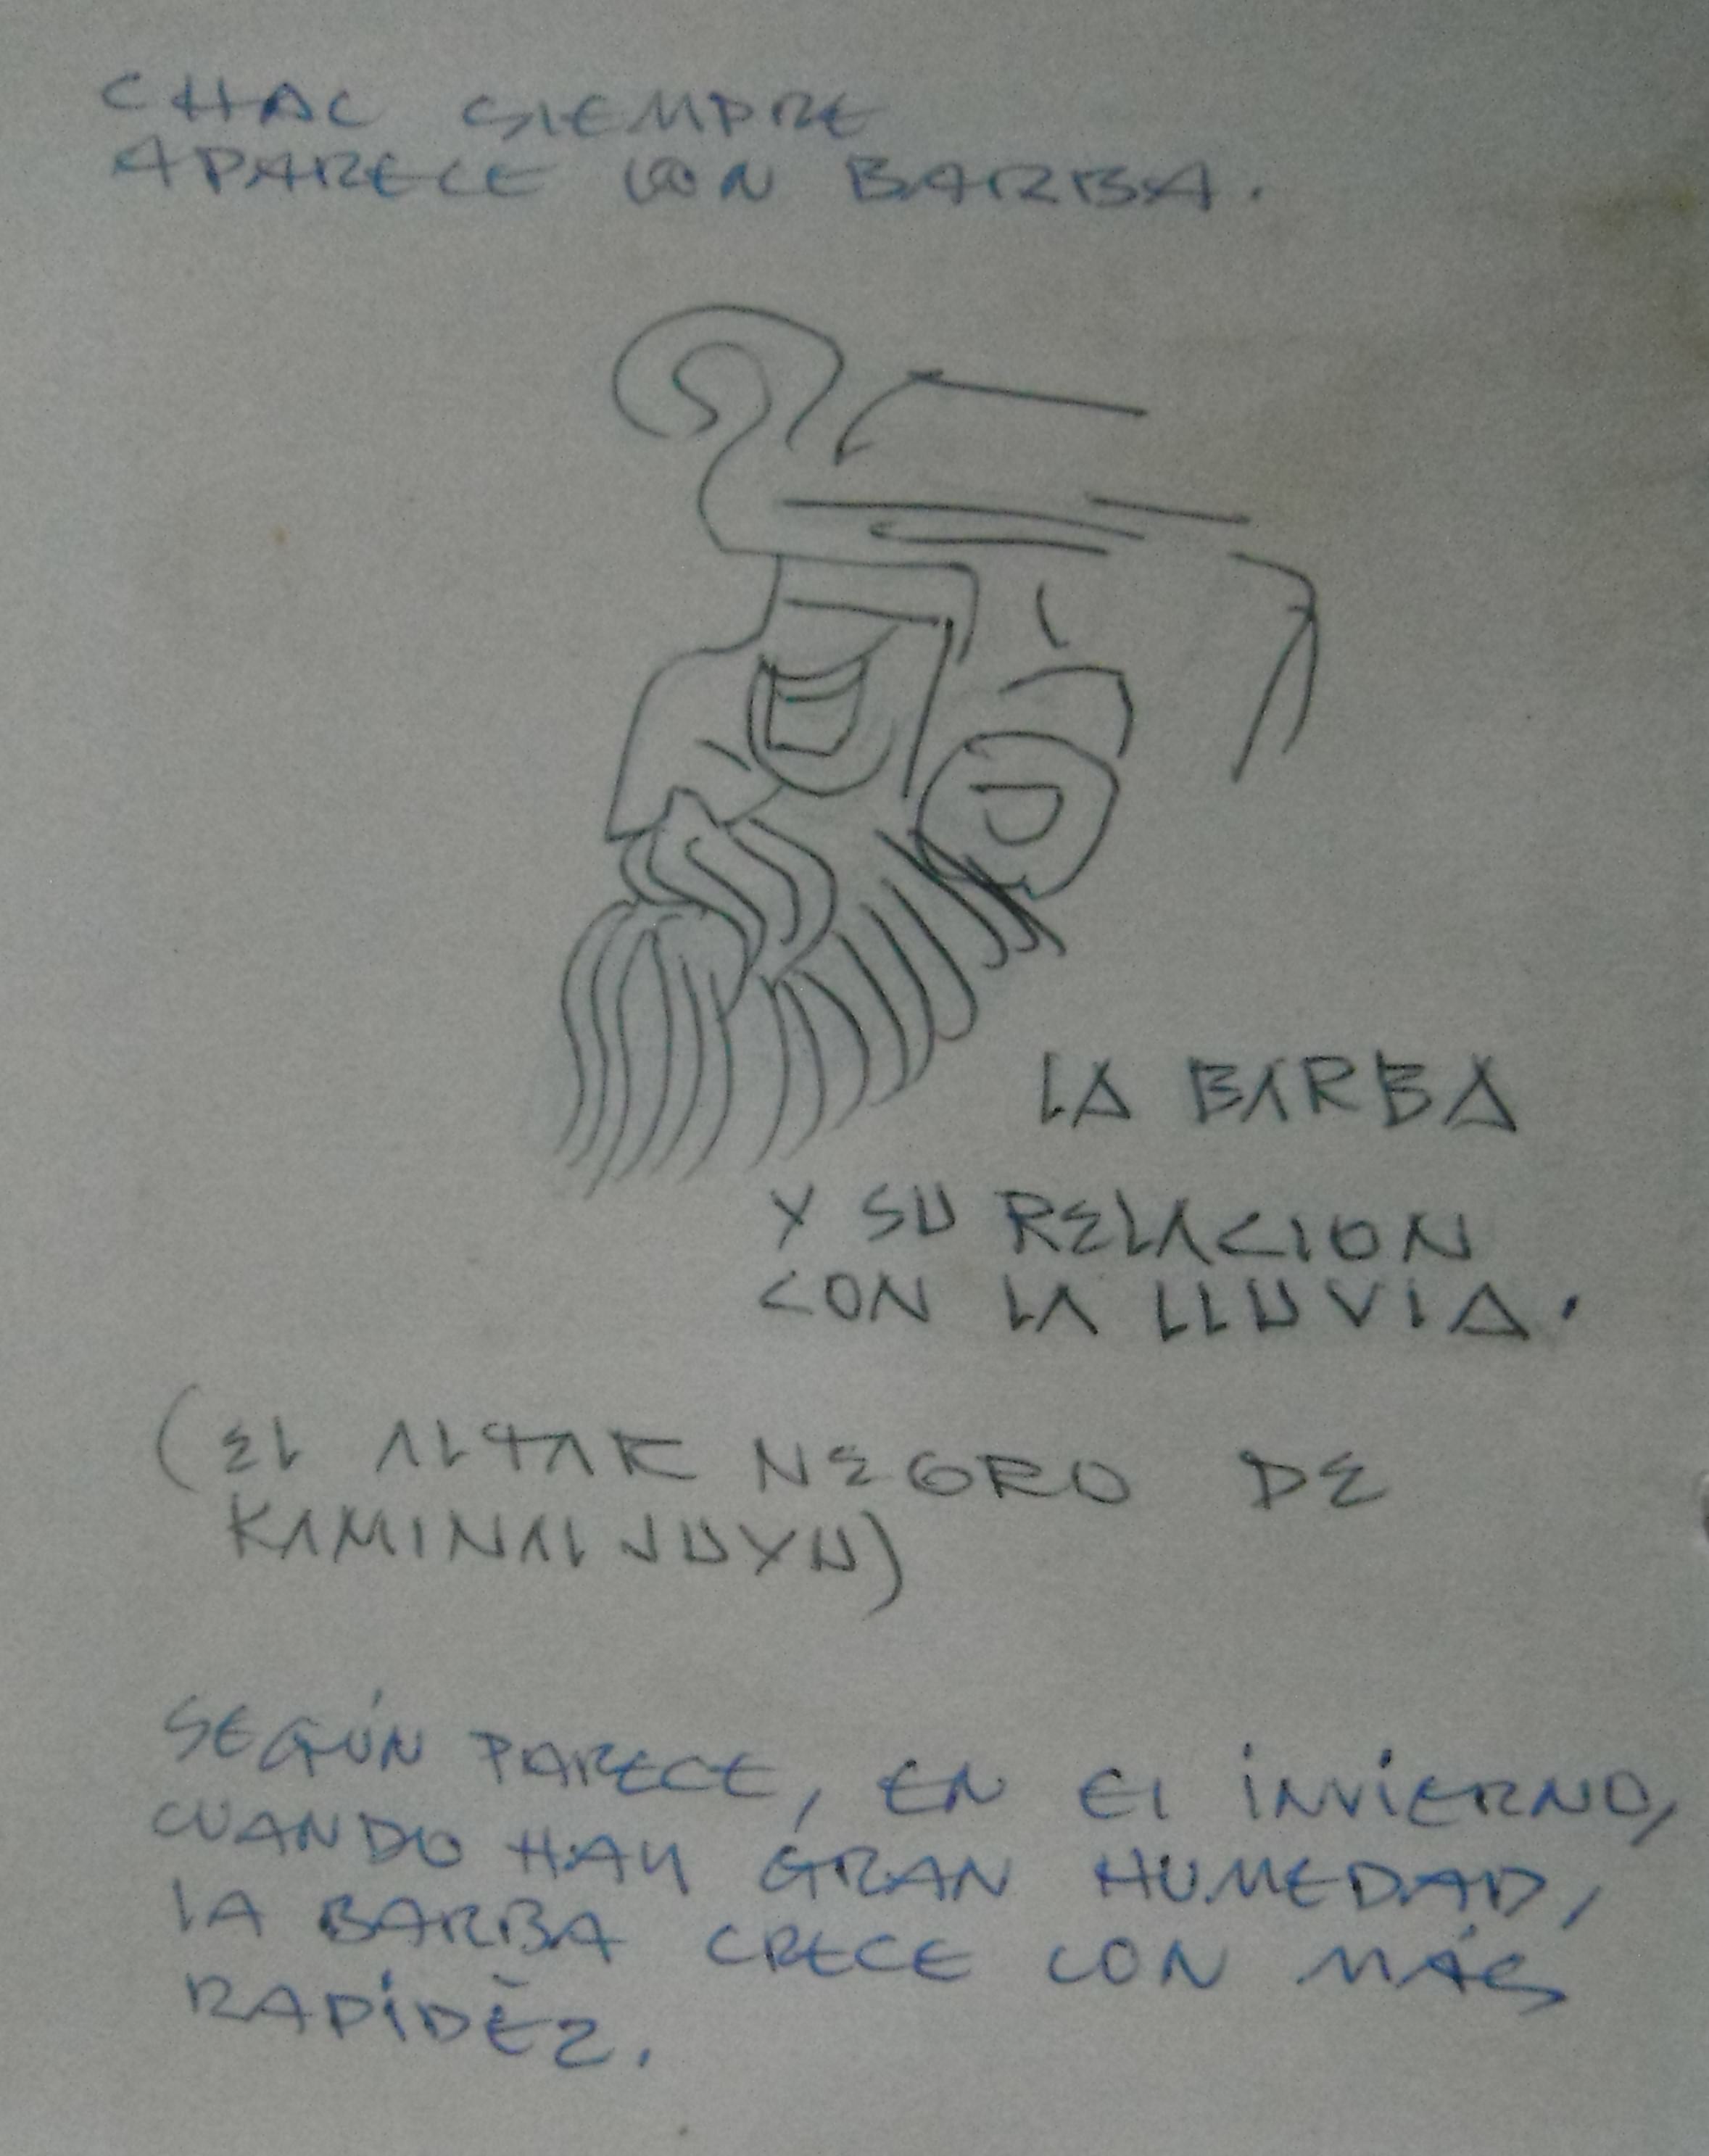 CHAC SIEMPRE
APARECE CON BARBA.
LA BARBA
Y SU RELACION
CON LA LLUVIA.
(EL ALTAR NEGRO DE
KAMINALJUYU)
SEGÚN PARECE, EN El iNViERNO,
CUANDO HAY GRAN HUMEDAD,
lA BARBA CRECE CON MÁS
RAPiDÉZ.